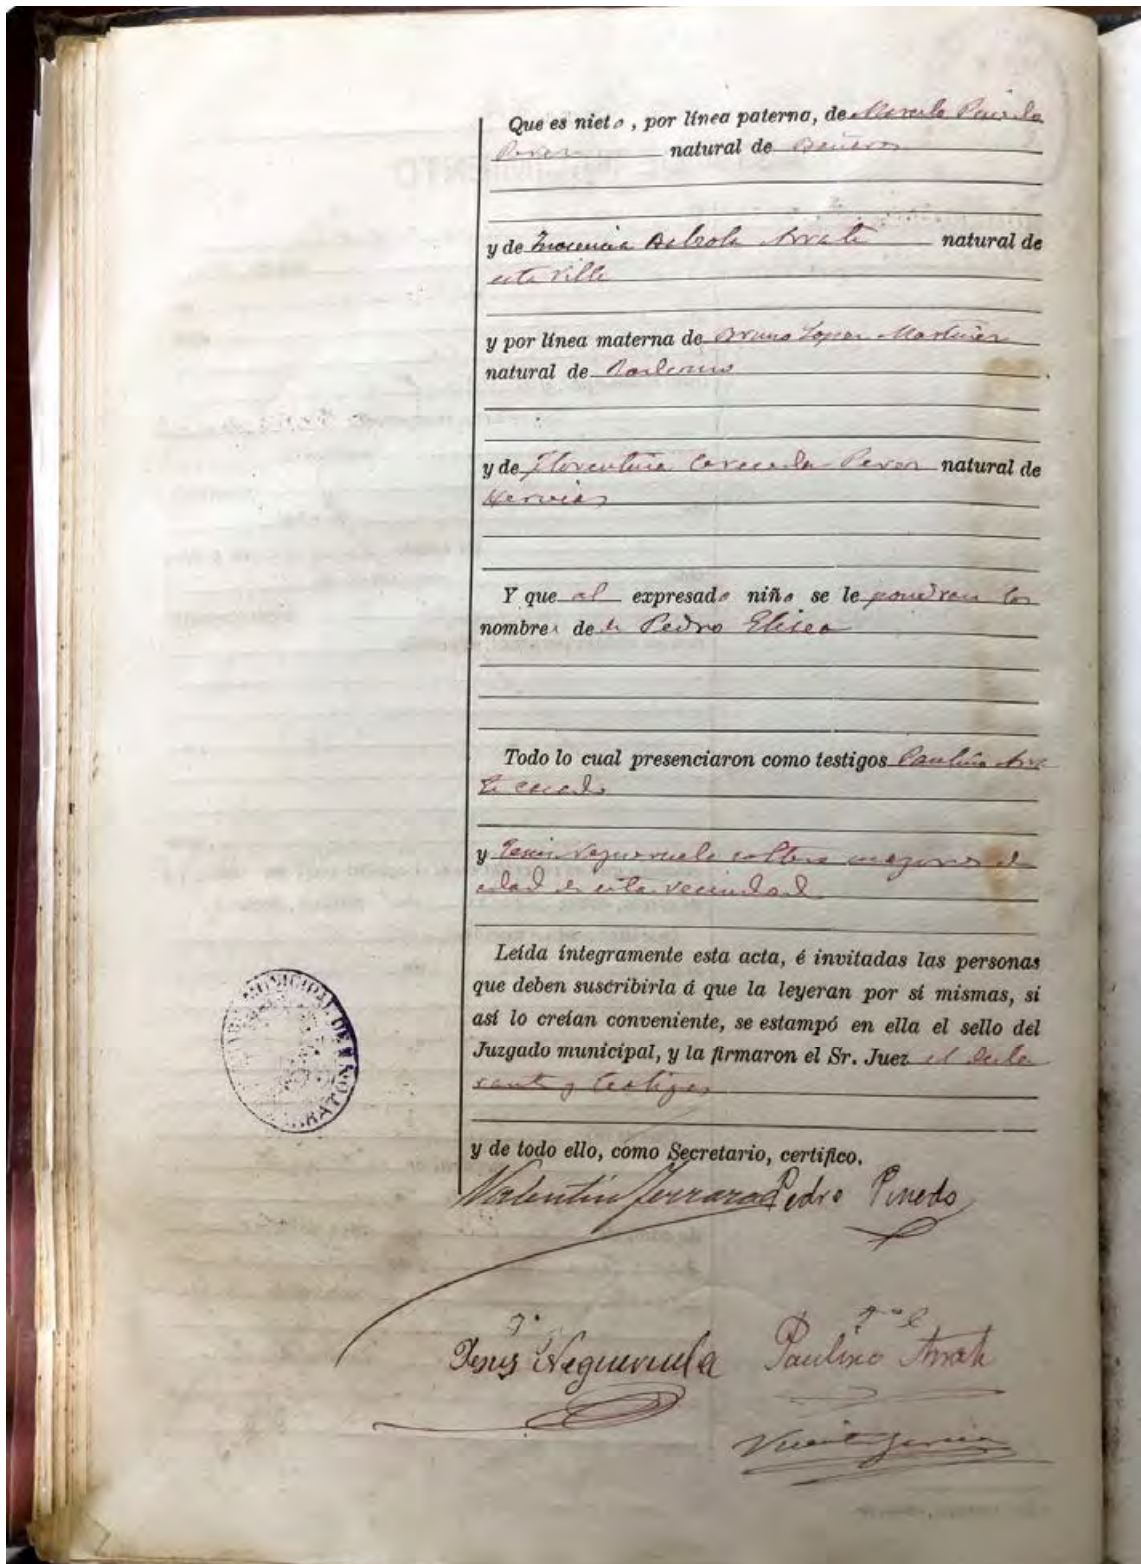 Que es nieto, por línea paterna, de Marcelo Pinedo
Perez natural de
y de Inocencia Arrate natural de
esta villa
y por línea materna de Bruno Lopez Martinez
natural de
y de Florentina Cereceda Perez natural de
Hervias
Y que al expresado niño se le pondran los
nombres de Pedro Eliseo
Todo lo cual presenciaron como testigos Paulino Arra
te casado
y Jesus Negueruela soltero mayores de
edad de esta vecindad
Leída íntegramente esta acta, é invitadas las personas
que deben suscribirla á que la leyeran por sí mismas, si
así lo creían conveniente, se estampó en ella el sello del
Juzgado municipal, y la firmaron el Sr. Juez el decla
rante y testigos
MUNICIPAL DE
y de todo ello, como Secretario, certifico.
Valentín Ferraras Pedro Pinedo
Jesus Negueruela Paulino Arrate
Vicente Garcia